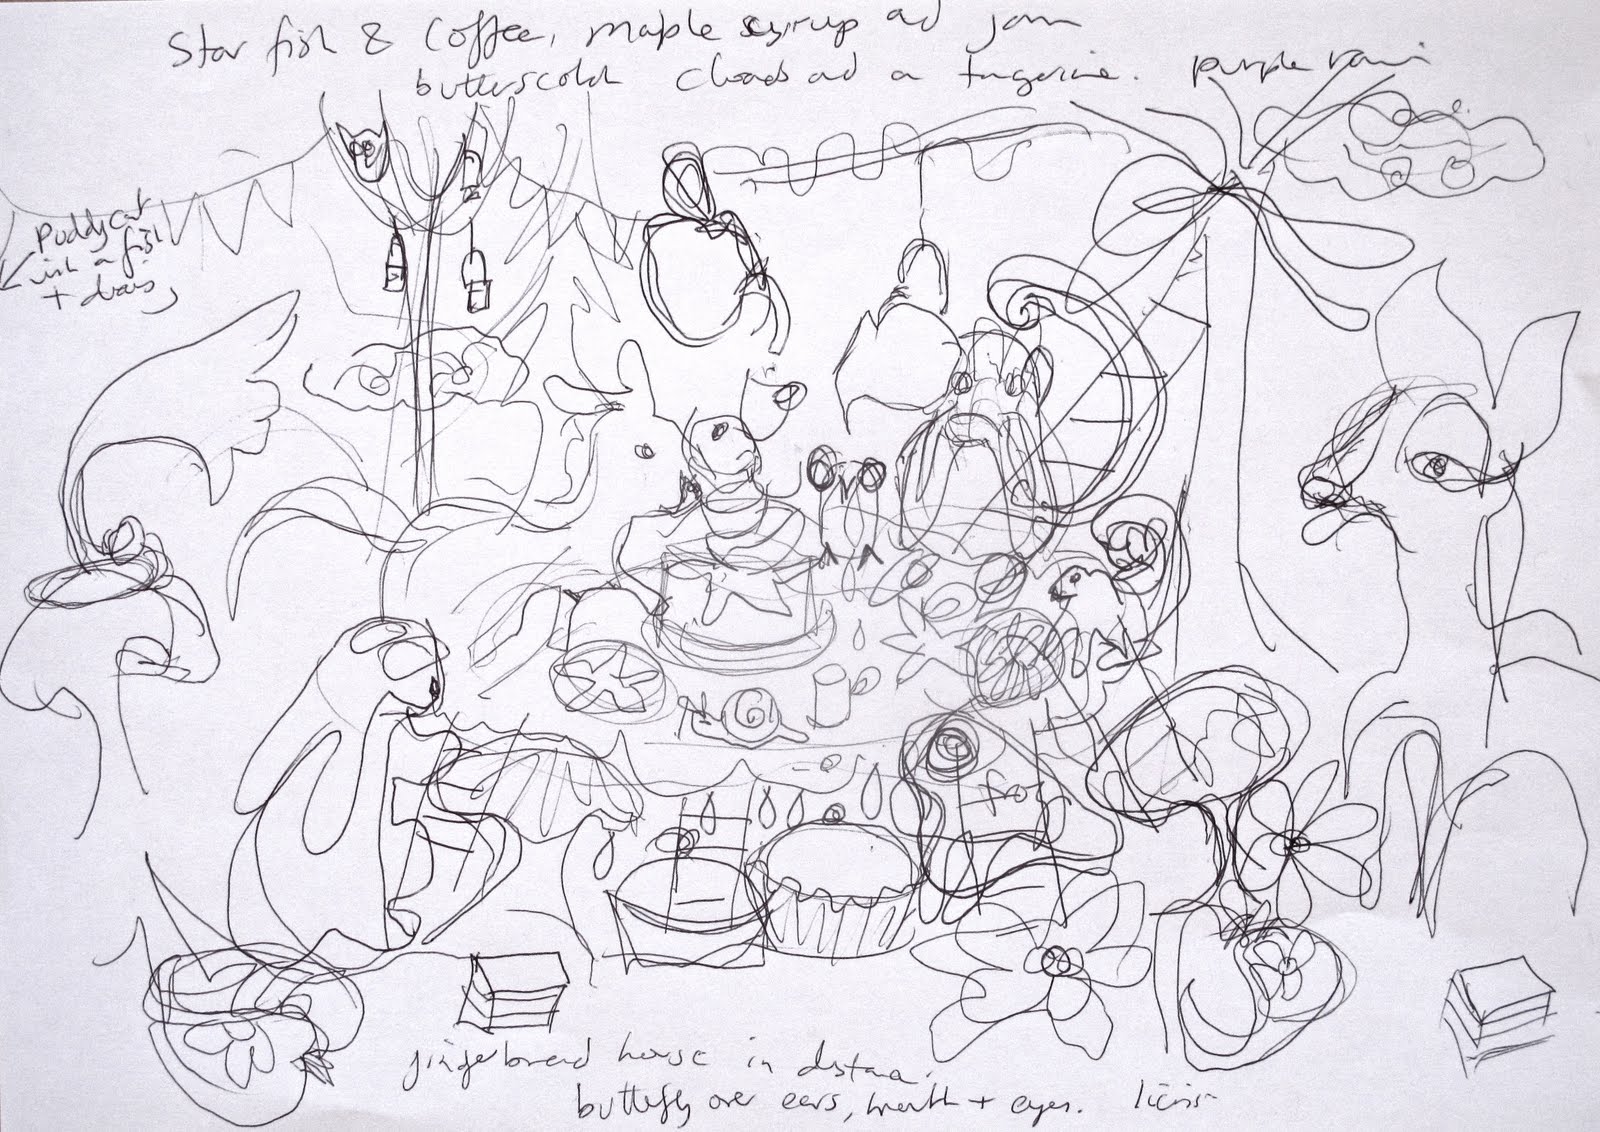 Star fish & Coffee, maple syrup ad jam
butterscotch clouds ad a tangerine. purple rain
Puddycat
in a fish
+ draws
gingerbread house in distance.
butterfly over ears, mouth + eyes.